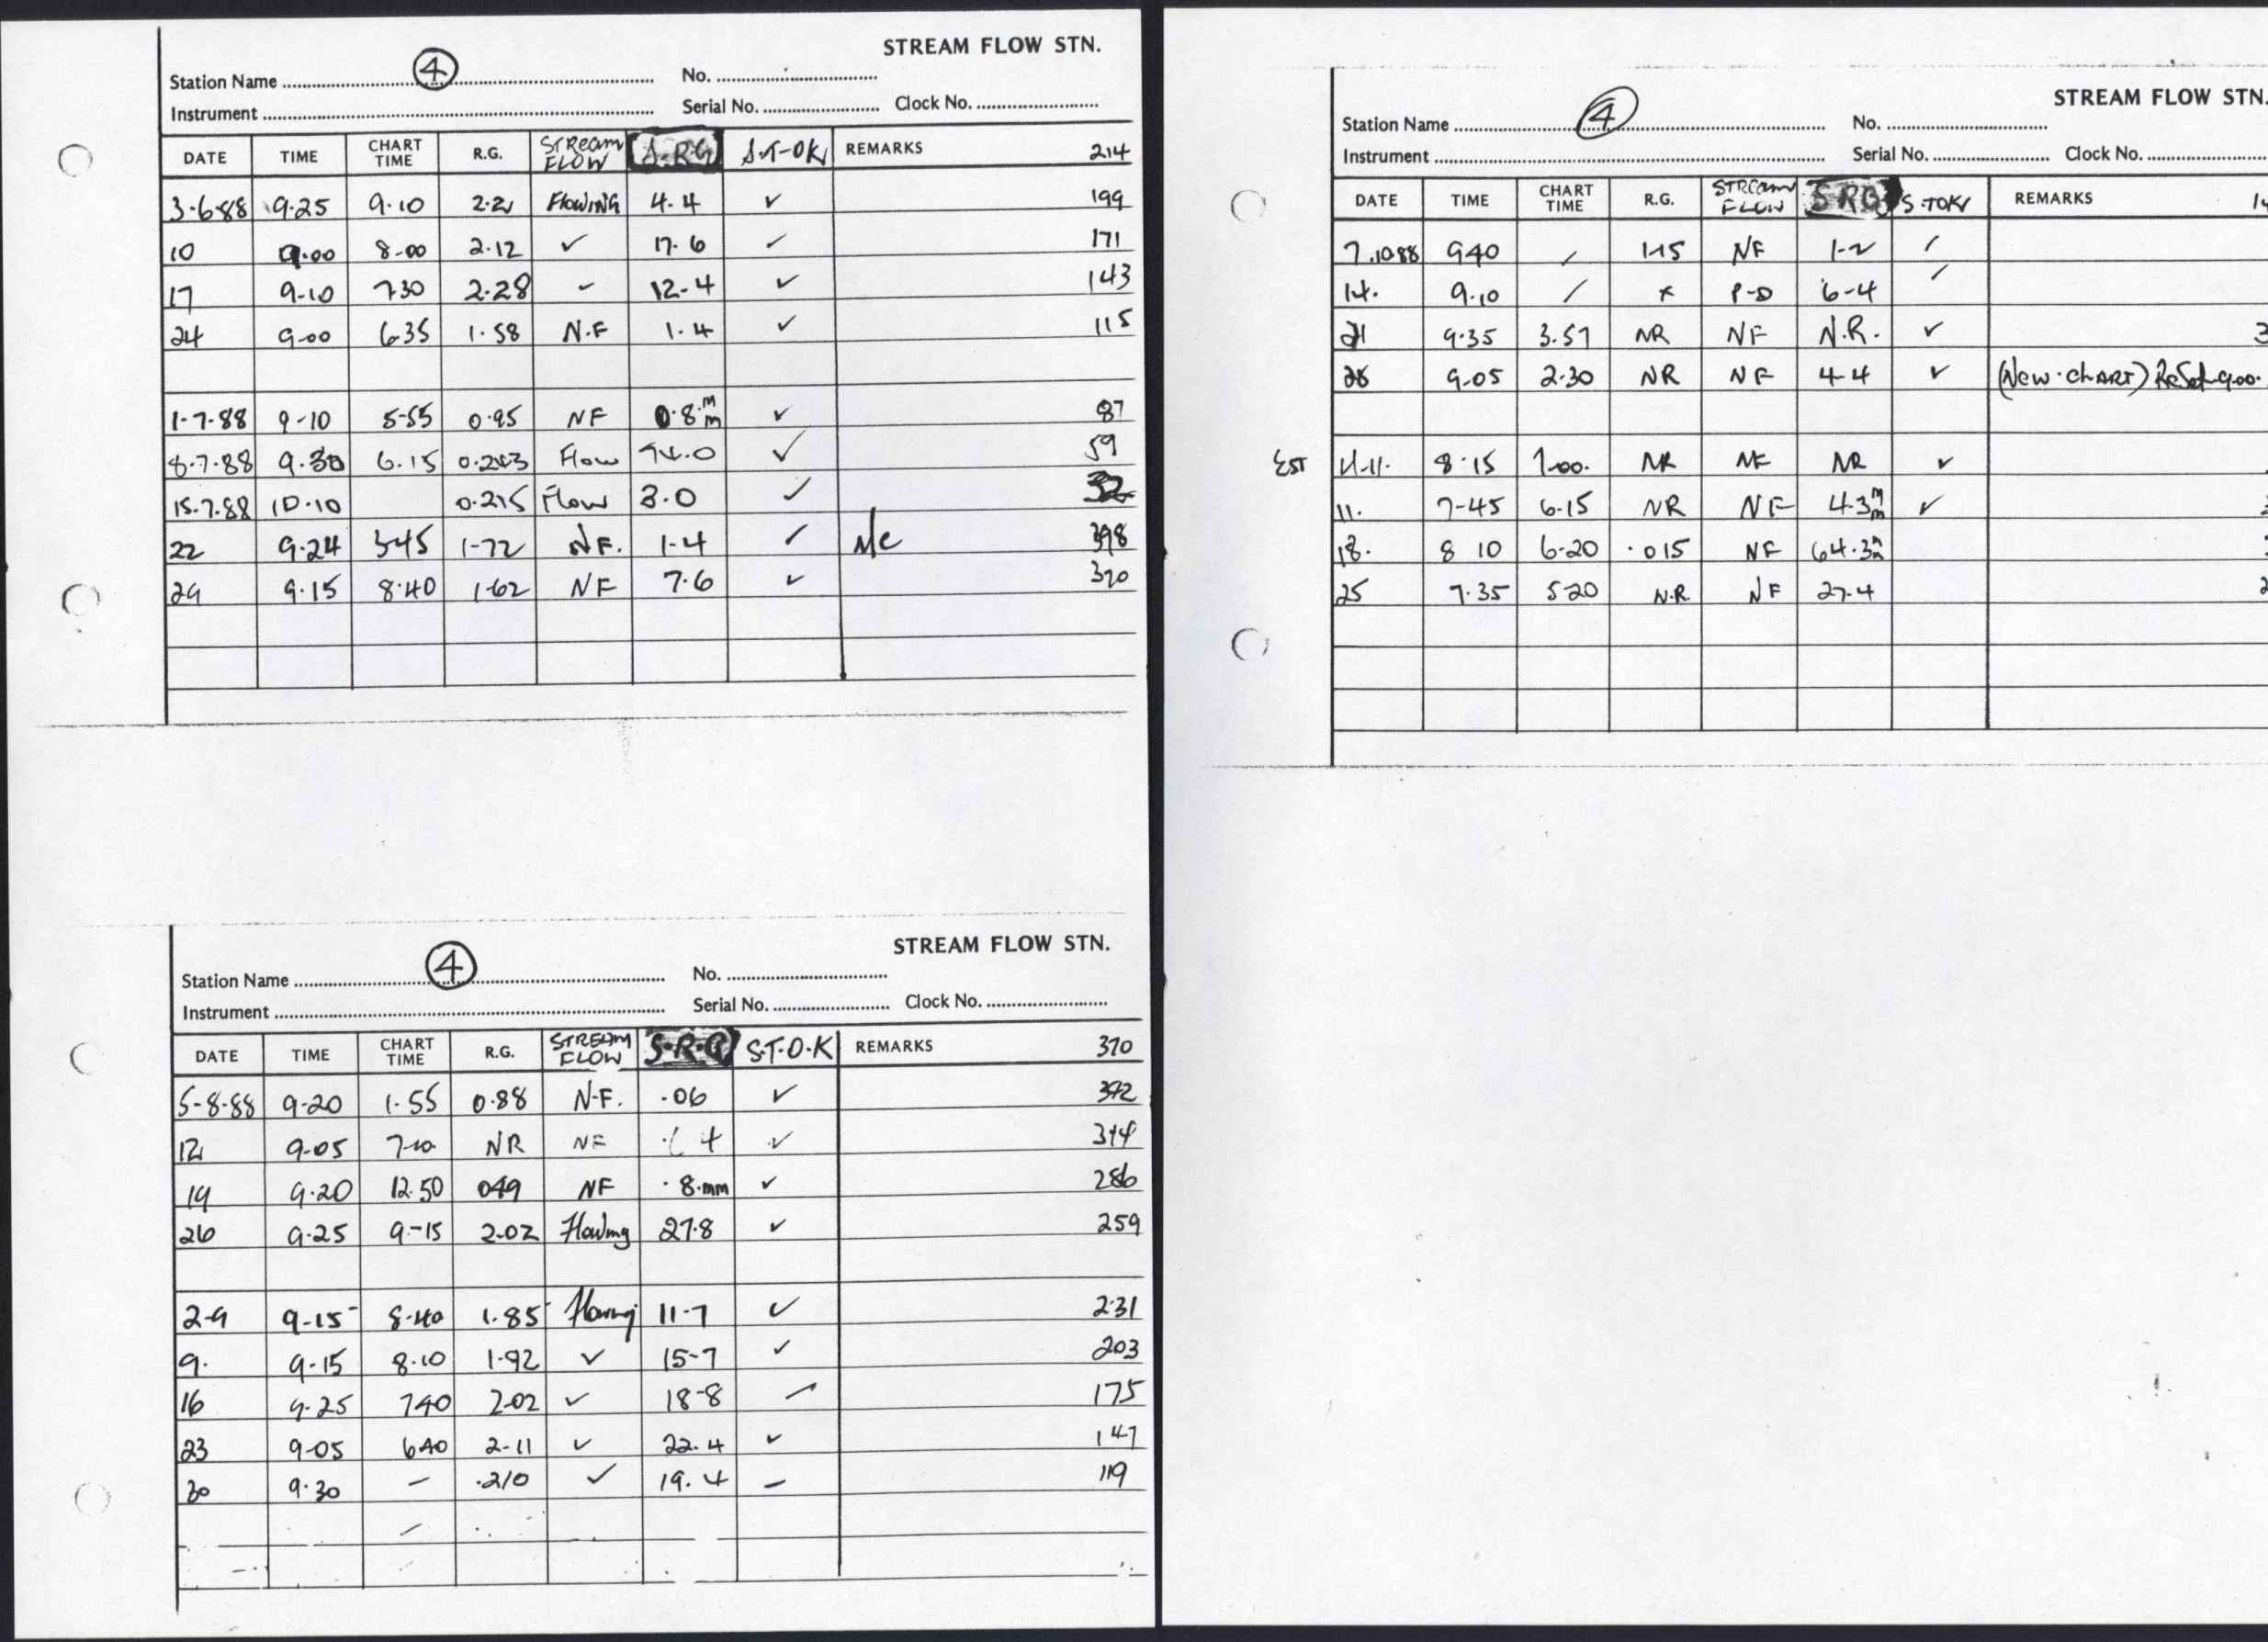 STREAM FLOW STN.
Station Name 4 No.
Instrument Serial No. Clock No.
DATE TIME CHART TIME R.G. STREAM FLOW S.RG S.T-OK REMARKS 214
3-6-88 9.25 9.10 2.21 FLOWING 4.4 ✓ 199
10 9.00 8-00 2.12 ✓ 17.6 ✓ 171
17 9-10 730 2.28 ✓ 12-4 ✓ 143
24 9-00 6.35 1.58 N.F 1.4 ✓ 115
1-7-88 9-10 5-55 0.95 NF 0.8.mm ✓ 87
8.7.88 9.30 6.15 Flow ✓ 59
15.7.88 10.10 0.215 Flow 3.0 ✓ 32
22 9.24 345 1-72 NF. 1-4 ✓ N/C 398
29 9.15 8.40 1.62 NF 7.6 ✓ 370
STREAM FLOW STN.
Station Name 4 No.
Instrument Serial No. Clock No.
DATE TIME CHART TIME R.G. STREAM FLOW S.R.G S.T.O.K REMARKS 370
5-8-88 9-20 1.55 0.88 N-F. .06 ✓ 342
12 9-05 NR NF ✓ 314
19 9.20 12.50 049 NF .8.mm ✓ 286
26 9.25 9-15 2.02 Flowing 27.8 ✓ 259
2-9 9-15 8.40 1.85 Flowing 11-7 ✓ 231
9. 9-15 8.10 1.92 ✓ 15-7 ✓ 203
16 9.25 740 2.02 ✓ 18-8 ✓ 175
23 9-05 640 2-11 ✓ 22.4 ✓ 147
30 9.30 – .210 ✓ 19.4 – 119
STREAM FLOW STN.
Station Name 4 No.
Instrument Serial No. Clock No.
DATE TIME CHART TIME R.G. STREAM FLOW S.RG S.TOK REMARKS
7.10.88 940 / 1.15 NF 1-2 /
14. 9.10 / x P-D 6-4 /
21 9.35 3.57 NR NF N.R. ✓
28 9.05 2.30 NR NF 4-4 ✓ (New.CHART) ReSet 9.00.
EST 8.15 7.00. NR NF NR ✓
11. 7-45 6.15 NR NF 4.3mm ✓
18. 8 10 6-20 .015 NF 64.3mm
25 7.35 5-20 N.R. NF 27.4